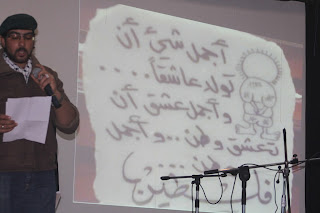 أجمل شيئ أن
تولد عاشقاً....
وأجمل عشق أن
تعشق وطن...وأجمل
وطن....
فلسطين